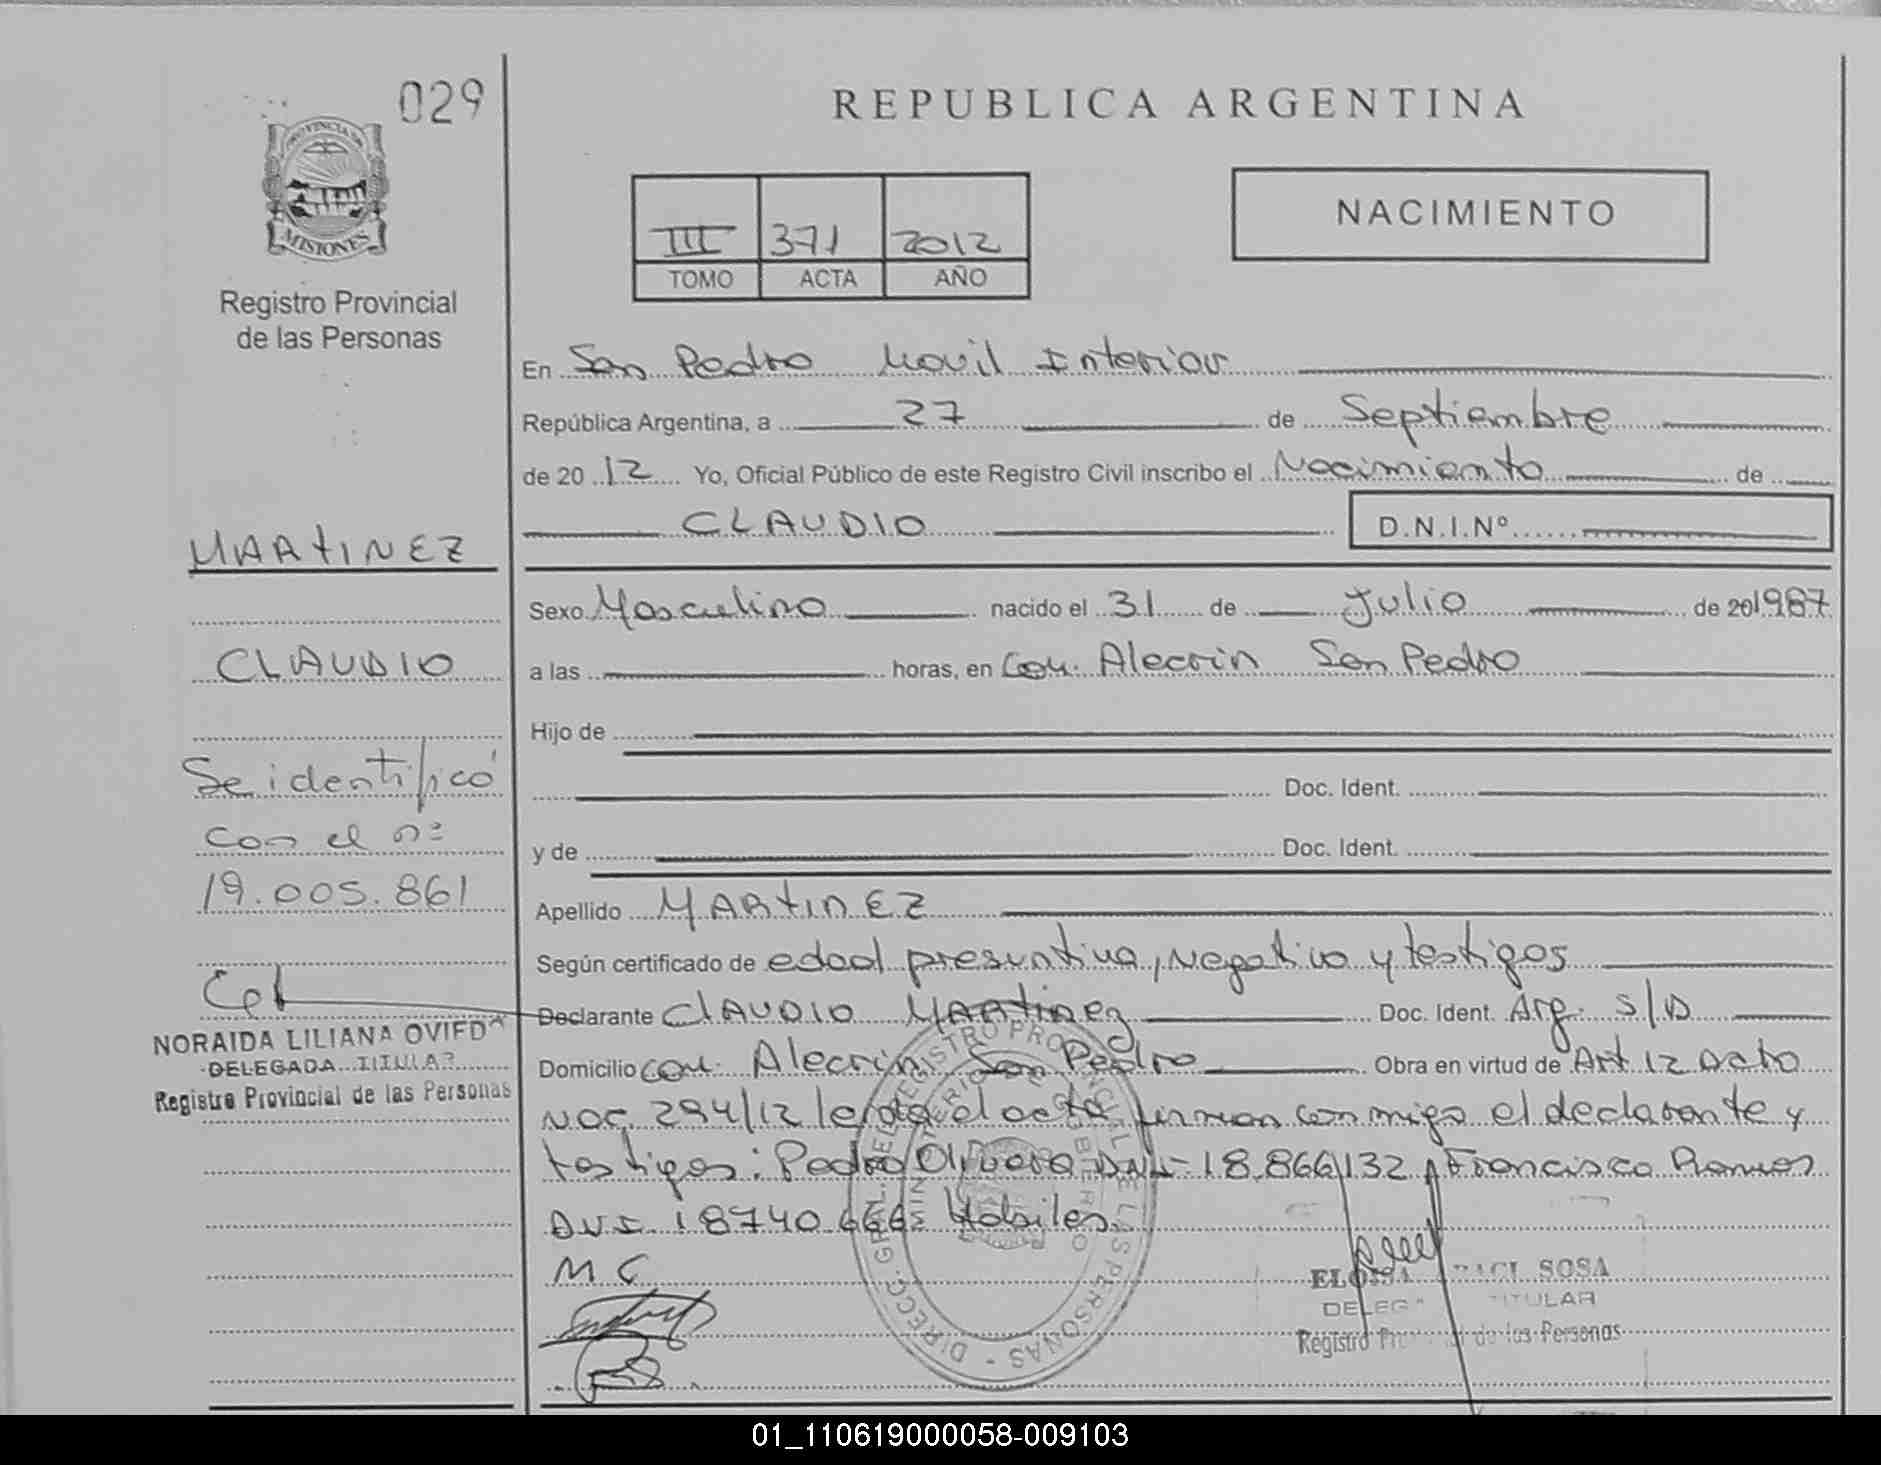 029
REPUBLICA ARGENTINA
PROVINCIA DE
MISIONES
Registro Provincial
de las Personas
III 371 2012
TOMO ACTA AÑO
NACIMIENTO
En San Pedro Movil Interior
República Argentina, a 27 de Septiembre
de 2012 Yo, Oficial Público de este Registro Civil inscribo el Nacimiento de
CLAUDIO D.N.I.Nº
MARTINEZ
CLAUDIO
Se identificó
con el nº
19.005.861
NORAIDA LILIANA OVIEDO
DELEGADA TITULAR
Registro Provincial de las Personas
Sexo Masculino nacido el 31 de Julio de 201987
a las horas, en Com. Alecrin San Pedro
Hijo de
Doc. Ident.
y de Doc. Ident.
Apellido MARTINEZ
Según certificado de edad presuntiva, Negativo y testigos
Declarante CLAUDIO MARTINEZ Doc. Ident. Arg. S/D
Domicilio com. Alecrin San Pedro Obra en virtud de Art 12 Acto
NAC. 294/12 leida el acta firman conmigo el declarante y
testigos: Pedro Olivera DNI- 18.866132 Francisco Ramos
DNI 18740.666 Habiles.
M C
ELOISA SOSA
DELEG TITULAR
Registro de las Personas
DIRECC. GRAL. DEL REGISTRO PROVINCIAL DE LAS PERSONAS
MINISTERIO DE GOBIERNO
01_110619000058-009103